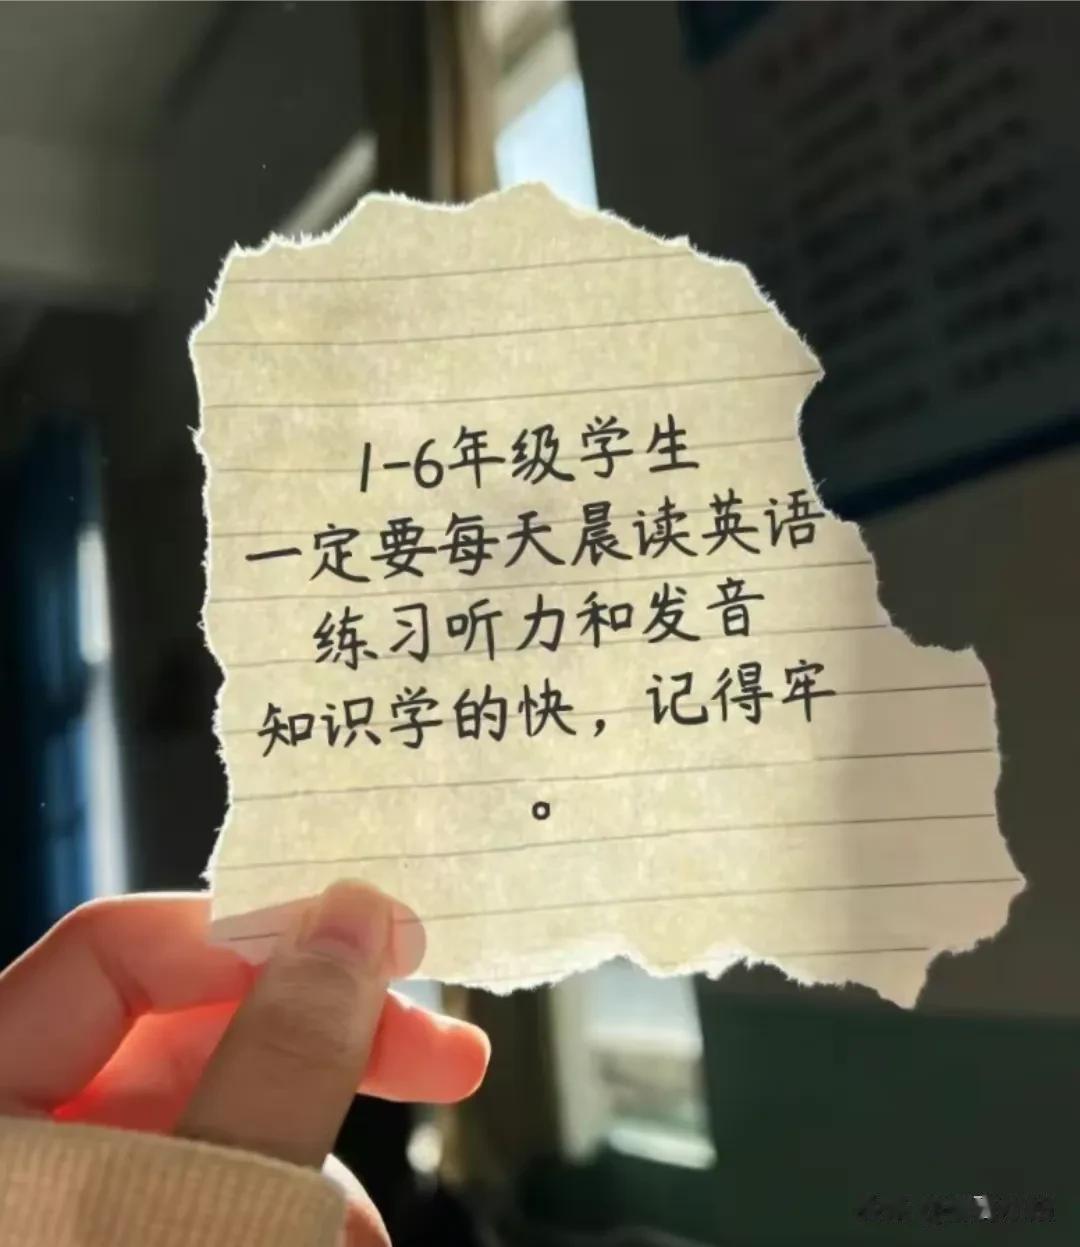 1-6年级学生
一定要每天晨读英语
练习听力和发音
知识学的快，记得牢
。